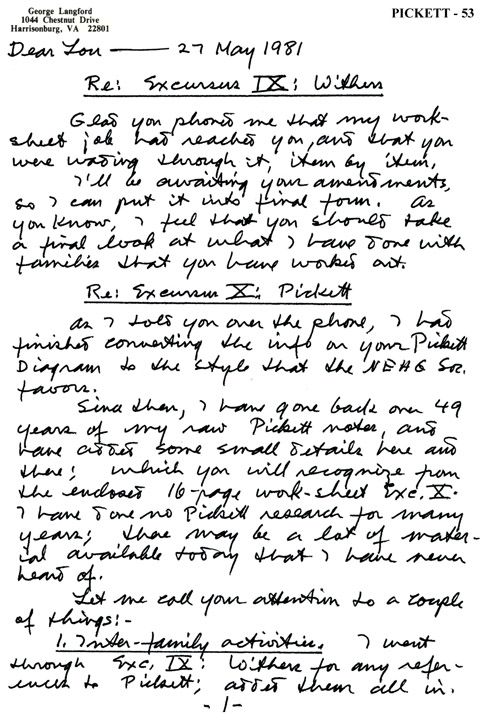 George Langford
1044 Chestnut Drive
Harrisonburg, VA 22801
PICKETT - 53
Dear Lou —— 27 May 1981
Re: Excursus IX: Withers
Glad you phoned me that my work-
sheet job had reached you, and that you
were wading through it, item by item.
I'll be awaiting your amendments,
so I can put it into final form. As
you know, I feel that you should take
a final look at what I have done with
families that you have worked out.
Re: Excursus X: Pickett
As I told you over the phone, I had
finished converting the info on your Pickett
Diagram to the style that the NEHG Soc.
favors.
Since then, I have gone back over 49
years of my raw Pickett notes, and
have added some small details here and
there; which you will recognize from
the enclosed 16-page work-sheet Exc. X.
I have done no Pickett research for many
years; there may be a lot of mater-
ial available today that I have never
heard of.
Let me call your attention to a couple
of things:-
1. Inter-family activities. I went
through Exc. IX: Withers for any refer-
ences to Pickett; added them all in.
-1-